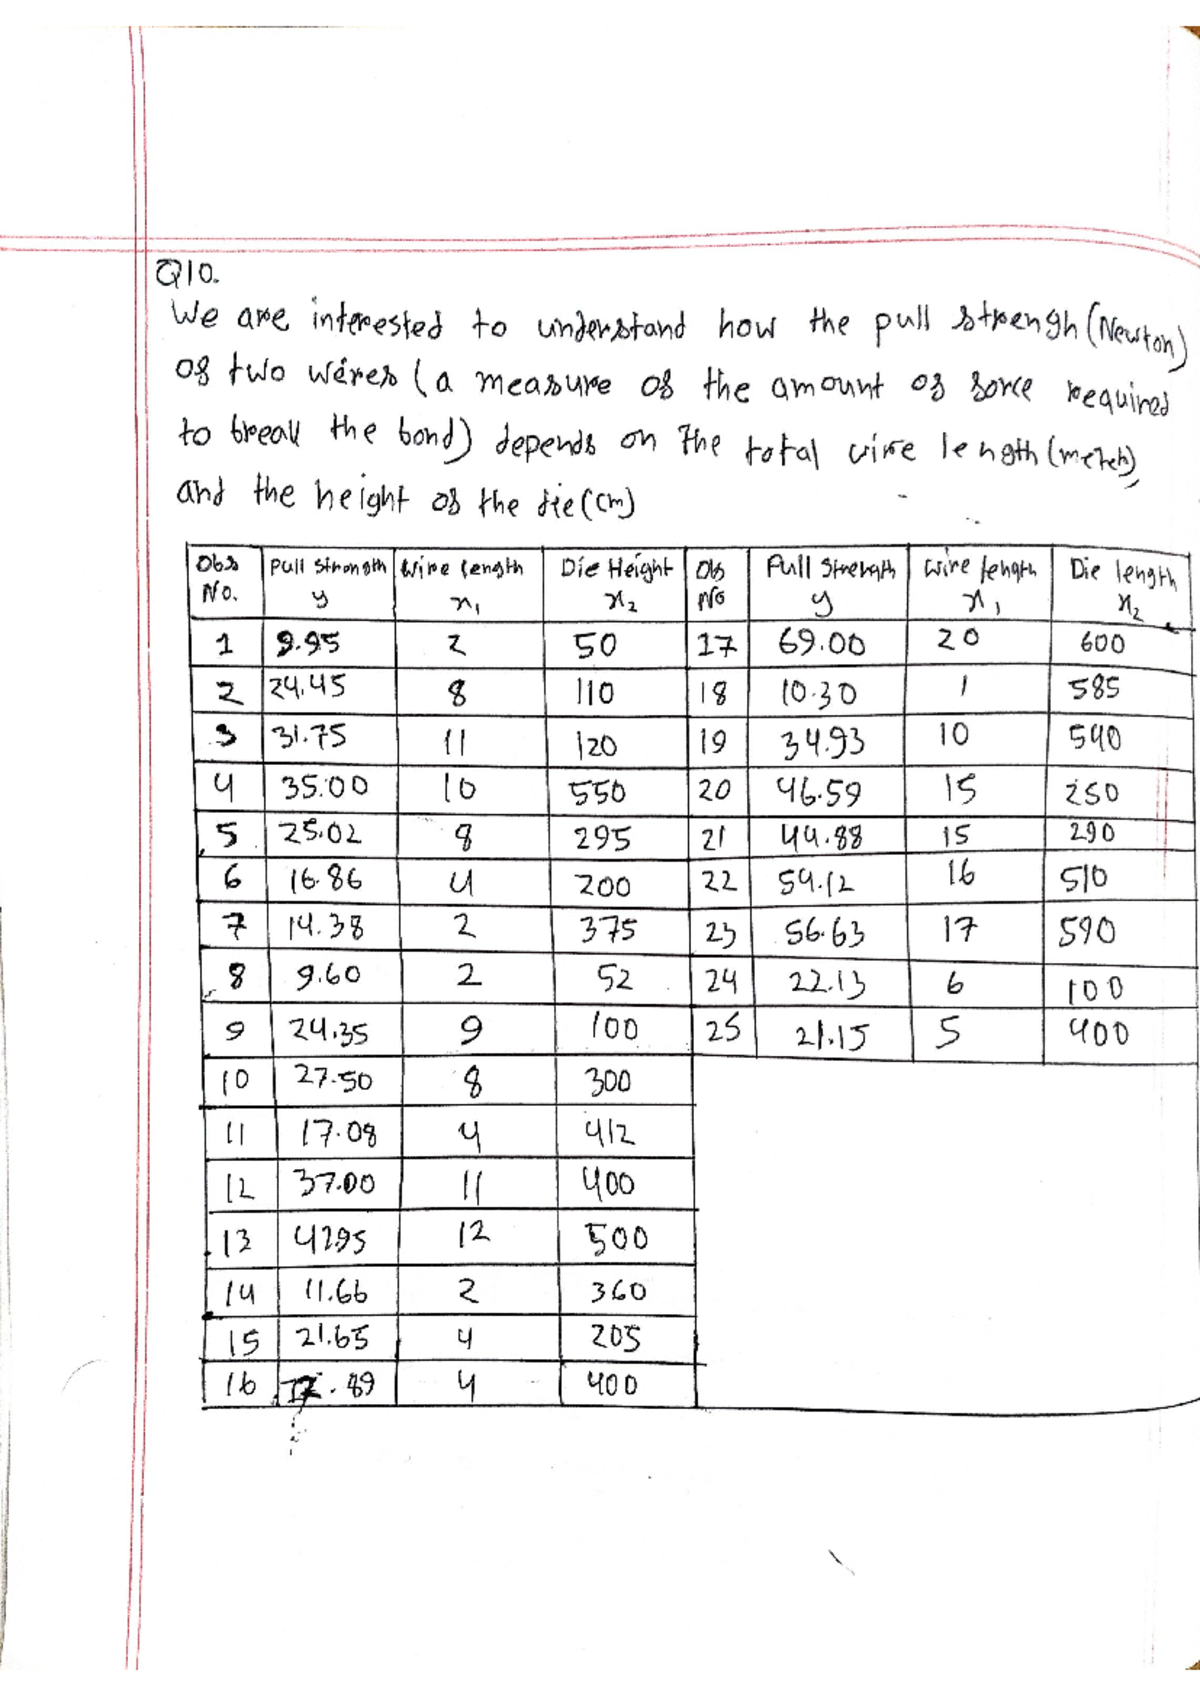 Q10.
We are interested to understand how the pull strengh (Newton)
of two wires (a measure of the amount of force required
to break the bond) depends on the total wire length (meteh)
and the height of the die (cm)
Obs No. | Pull Strongth y | Wire length x₁ | Die Height x₂ | Obs No | Pull Strength y | wire length x₁ | Die length x₂
1 | 9.95 | 2 | 50 | 17 | 69.00 | 20 | 600
2 | 24.45 | 8 | 110 | 18 | 10.30 | 1 | 585
3 | 31.75 | 11 | 120 | 19 | 34.93 | 10 | 540
4 | 35.00 | 10 | 550 | 20 | 46.59 | 15 | 250
5 | 25.02 | 8 | 295 | 21 | 44.88 | 15 | 290
6 | 16.86 | 4 | 200 | 22 | 54.12 | 16 | 510
7 | 14.38 | 2 | 375 | 23 | 56.63 | 17 | 590
8 | 9.60 | 2 | 52 | 24 | 22.13 | 6 | 100
9 | 24.35 | 9 | 100 | 25 | 21.15 | 5 | 400
10 | 27.50 | 8 | 300
11 | 17.08 | 4 | 412
12 | 37.00 | 11 | 400
13 | 41.95 | 12 | 500
14 | 11.66 | 2 | 360
15 | 21.65 | 4 | 205
16 | .89 | 4 | 400